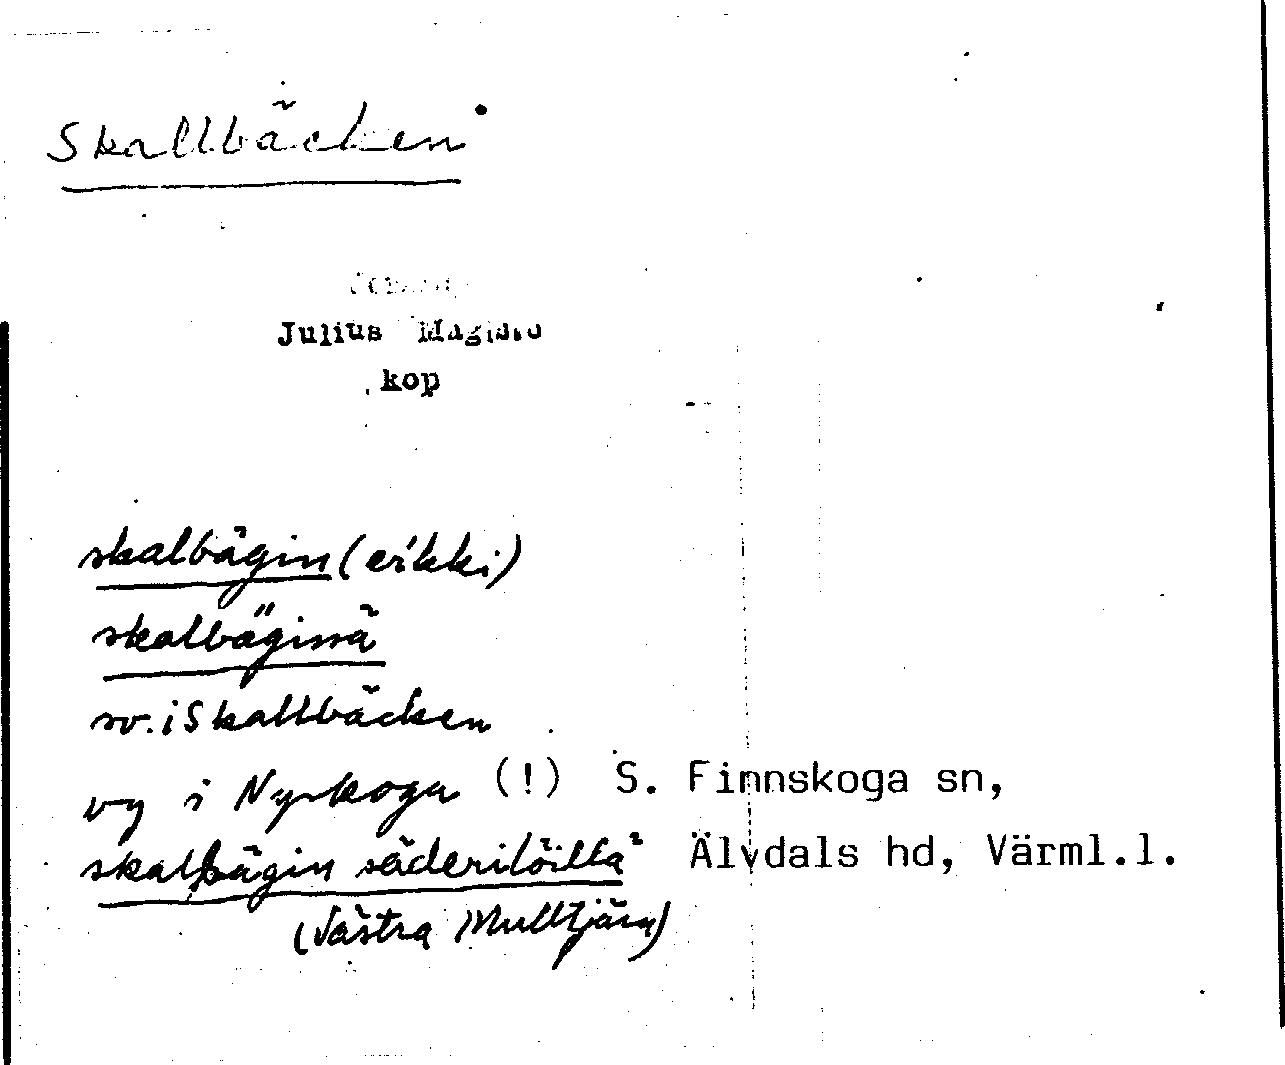 Skallbäcken
Julius Mägiste
kop
skalbägin (eikki)
skalbäginä
sv. i Skallbäcken
vy i Nyskoga (!) S. Finnskoga sn,
skalbägin säderilöillä Älvdals hd, Värml.l.
(Västra Mulltjärn)